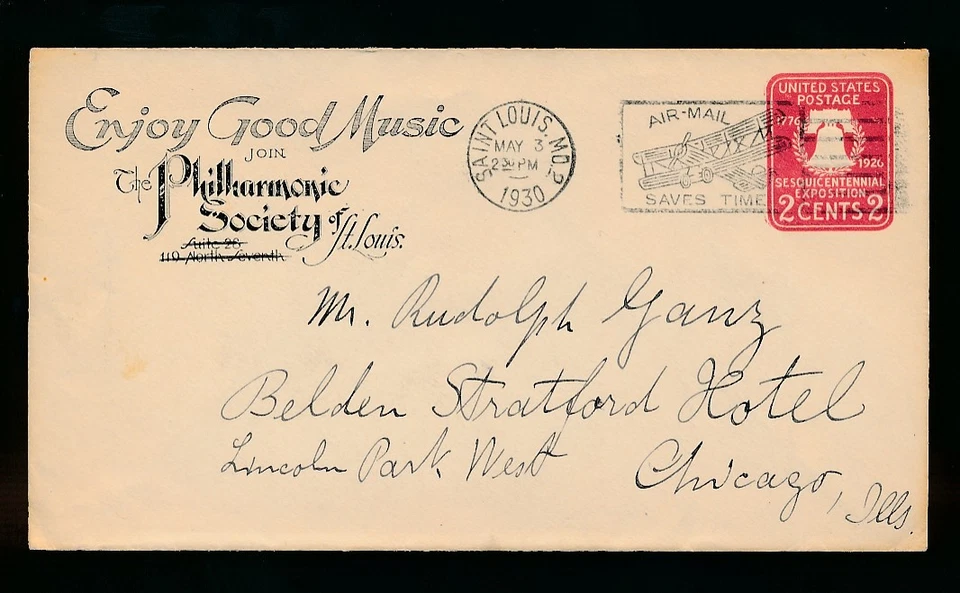 Enjoy Good Music
JOIN
The Philharmonic
Society of St. Louis.
Suite 28
119 North Seventh
SAINT LOUIS, MO. 2
MAY 3
2 30 PM
1930
AIR-MAIL
SAVES TIME
UNITED STATES
POSTAGE
1776
1926
SESQUICENTENNIAL
EXPOSITION
2 CENTS 2
Mr. Rudolph Ganz
Belden Stratford Hotel
Lincoln Park West Chicago, Ills.